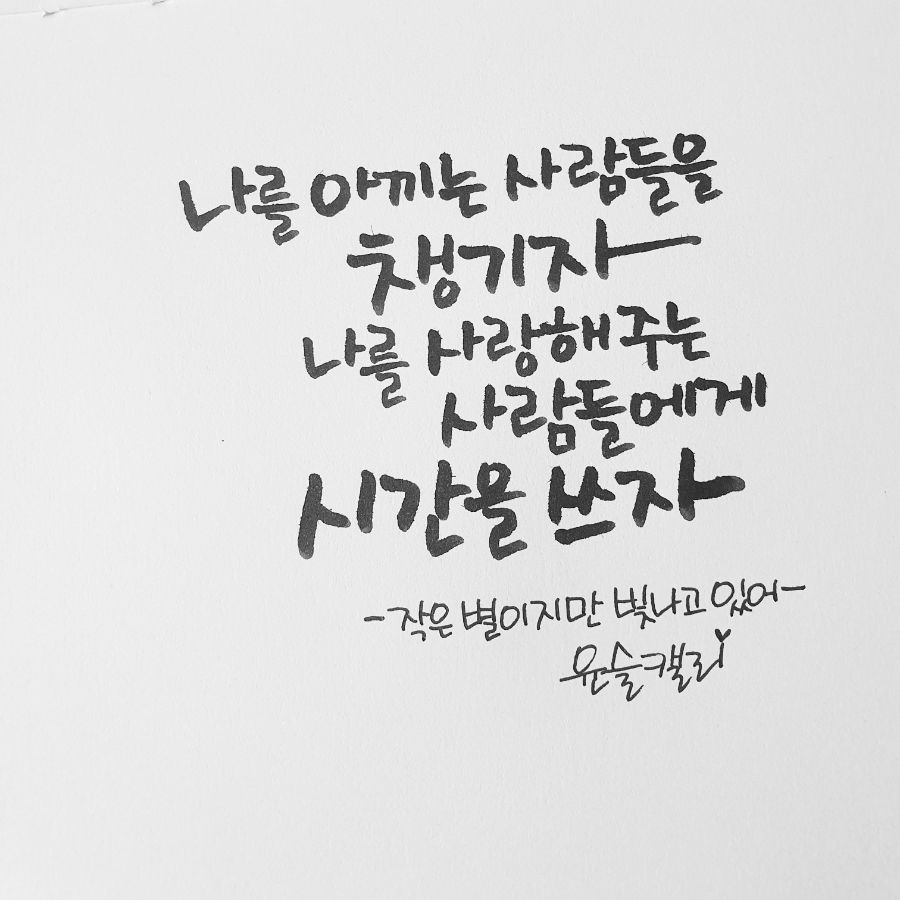 나를 아끼는 사람들을
챙기자
나를 사랑해 주는
사람들에게
시간을 쓰자
-작은 별이지만 빛나고 있어-
윤슬캘리